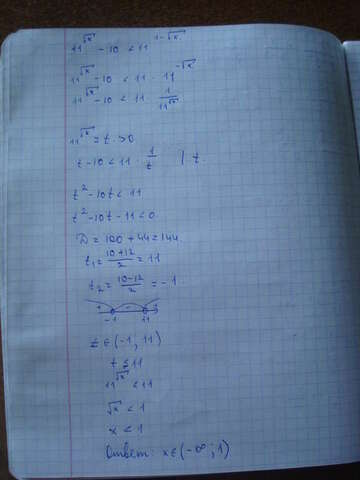 11^√x - 10 < 11^1-√x
11^√x - 10 < 11 · 11^-√x
11^√x - 10 < 11 · 1/11^√x
11^√x = t > 0
t - 10 < 11 · 1/t | t
t² - 10t < 11
t² - 10t - 11 < 0
D = 100 + 44 = 144
t₁ = 10+12/2 = 11
t₂ = 10-12/2 = -1
+ - +
-1 11
t ∈ (-1, 11)
t < 11
11^√x < 11
√x < 1
x < 1
Ответ: x ∈ (-∞; 1)